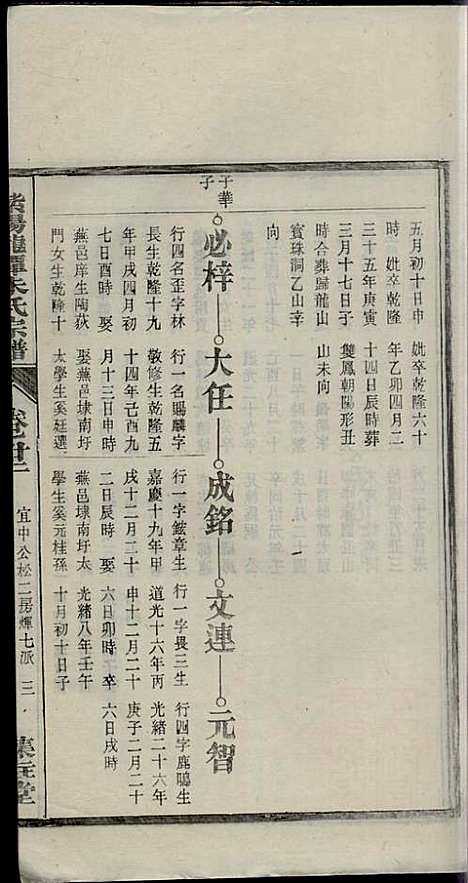 五月初十日申
時　妣卒乾隆
三十五年庚寅
三月十七日子
時合葬歸龍山
寳珠洞乙山辛
向
妣卒乾隆六十
年乙卯四月二
十四日辰時葬
雙鳳朝陽形丑
山未向
子華
子
必梓
大任
成銘
文連
元智
行四名歪字林
長生乾隆十九
年甲戌四月初
七日酉時　娶
蕪邑庠生陶荻
門女生乾隆十
行一名賜麟字
敬修生乾隆五
十四年己酉九
月十三日申時
娶蕪邑埭南圩
太學生奚廷選
行一字鉉章生
嘉慶十九年甲
戌十二月二十
二日辰時　娶
蕪邑埭南圩太
學生奚元桂孫
行一字畏三生
道光十六年丙
申十二月二十
六日卯時　卒
光緒八年壬午
十月初十日子
行四字鹿鳴生
光緒二十六年
庚子二月二十
六日戌時
紫陽龍潭朱氏宗譜
卷廿二
宜中公松二房煇七派　三
集注堂